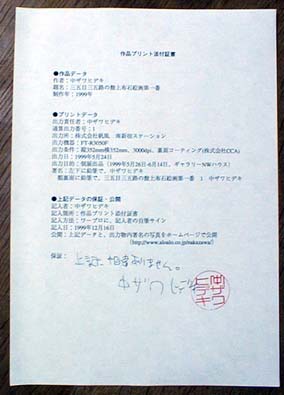 作品プリント添付証書
●作品データ
作者：中ザワヒデキ
題名：三五目三五路の盤上布石絵画第一番
制作年：1999年
●プリントデータ
出力責任者：中ザワヒデキ
通算出力番号：1
出力所：株式会社帆風 南新宿ステーション
出力機器：FT-R3050F
出力条件：縦352mm横352mm、3000dpi、裏面コーティング(株式会社CCA)
出力日：1999年5月24日
出力目的：個展出品（1999年5月26日-6月14日、ギャラリーNWハウス）
署名：左下に鉛筆で、中ザワヒデキ
額裏面に鉛筆で、三五目三五路の盤上布石絵画第一番 1 中ザワヒデキ
●上記データの保証・公開
記入者：中ザワヒデキ
記入箇所：作品プリント添付証書
記入方法：ワープロに、記入者の自筆サイン
記入日：1999年12月16日
公開：上記データと、出力物内署名の写真をホームページで公開
(http://www.aloalo.co.jp/nakazawa/)
保証：
上記に相違ありません。
中ザワヒデキ
中ザワヒデキ